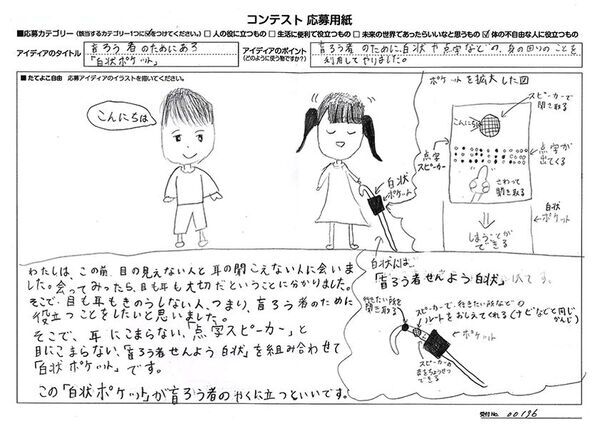 コンテスト 応募用紙
■応募カテゴリー(該当するカテゴリー1つに☑をつけてください。) □ 人の役に立つもの □ 生活に便利で役立つもの □ 未来の世界であったらいいなと思うもの ☑ 体の不自由な人に役立つもの
アイディアのタイトル
盲ろう者のためにある
「白状ポケット」
アイディアのポイント
(どのように使う物ですか?)
盲ろう者のために、白状や点字などの、身の回りのことを
利用してやりました。
■たてよこ自由 応募アイディアのイラストを描いてください。
こんにちは
白状
ポケット
ポケットを拡大した図
スピーカーで
聞き取る
こんにちは
点字
スピーカー
点字が
出てくる
さわって
聞き取る
白状
ポケット
しまうことが
できる
わたしは、この前、目の見えない人と耳の聞こえない人に会いま
した。会ってみったら、目も耳も大切だということに分かりました。
そこで、目も耳もきのうしない人、つまり、盲ろう者のために
役立つことをしたいと思いました。
そこで、耳にこまらない、「点字スピーカー」と
目にこまらない、「盲ろう者せんよう白状」を組み合わせて
「白状ポケット」です。
この「白状ポケット」が盲ろう者のやくに立つといいです。
白状には、
「盲ろう者せんよう白状」
行きたい所を
聞き取る
スピーカーで、行きたい所などの
ルートをおしえてくれる(ナビなどと同じ
かんじ)
ポケット
スピーカーの
音をちょうせつ
できる
受付No. 00196